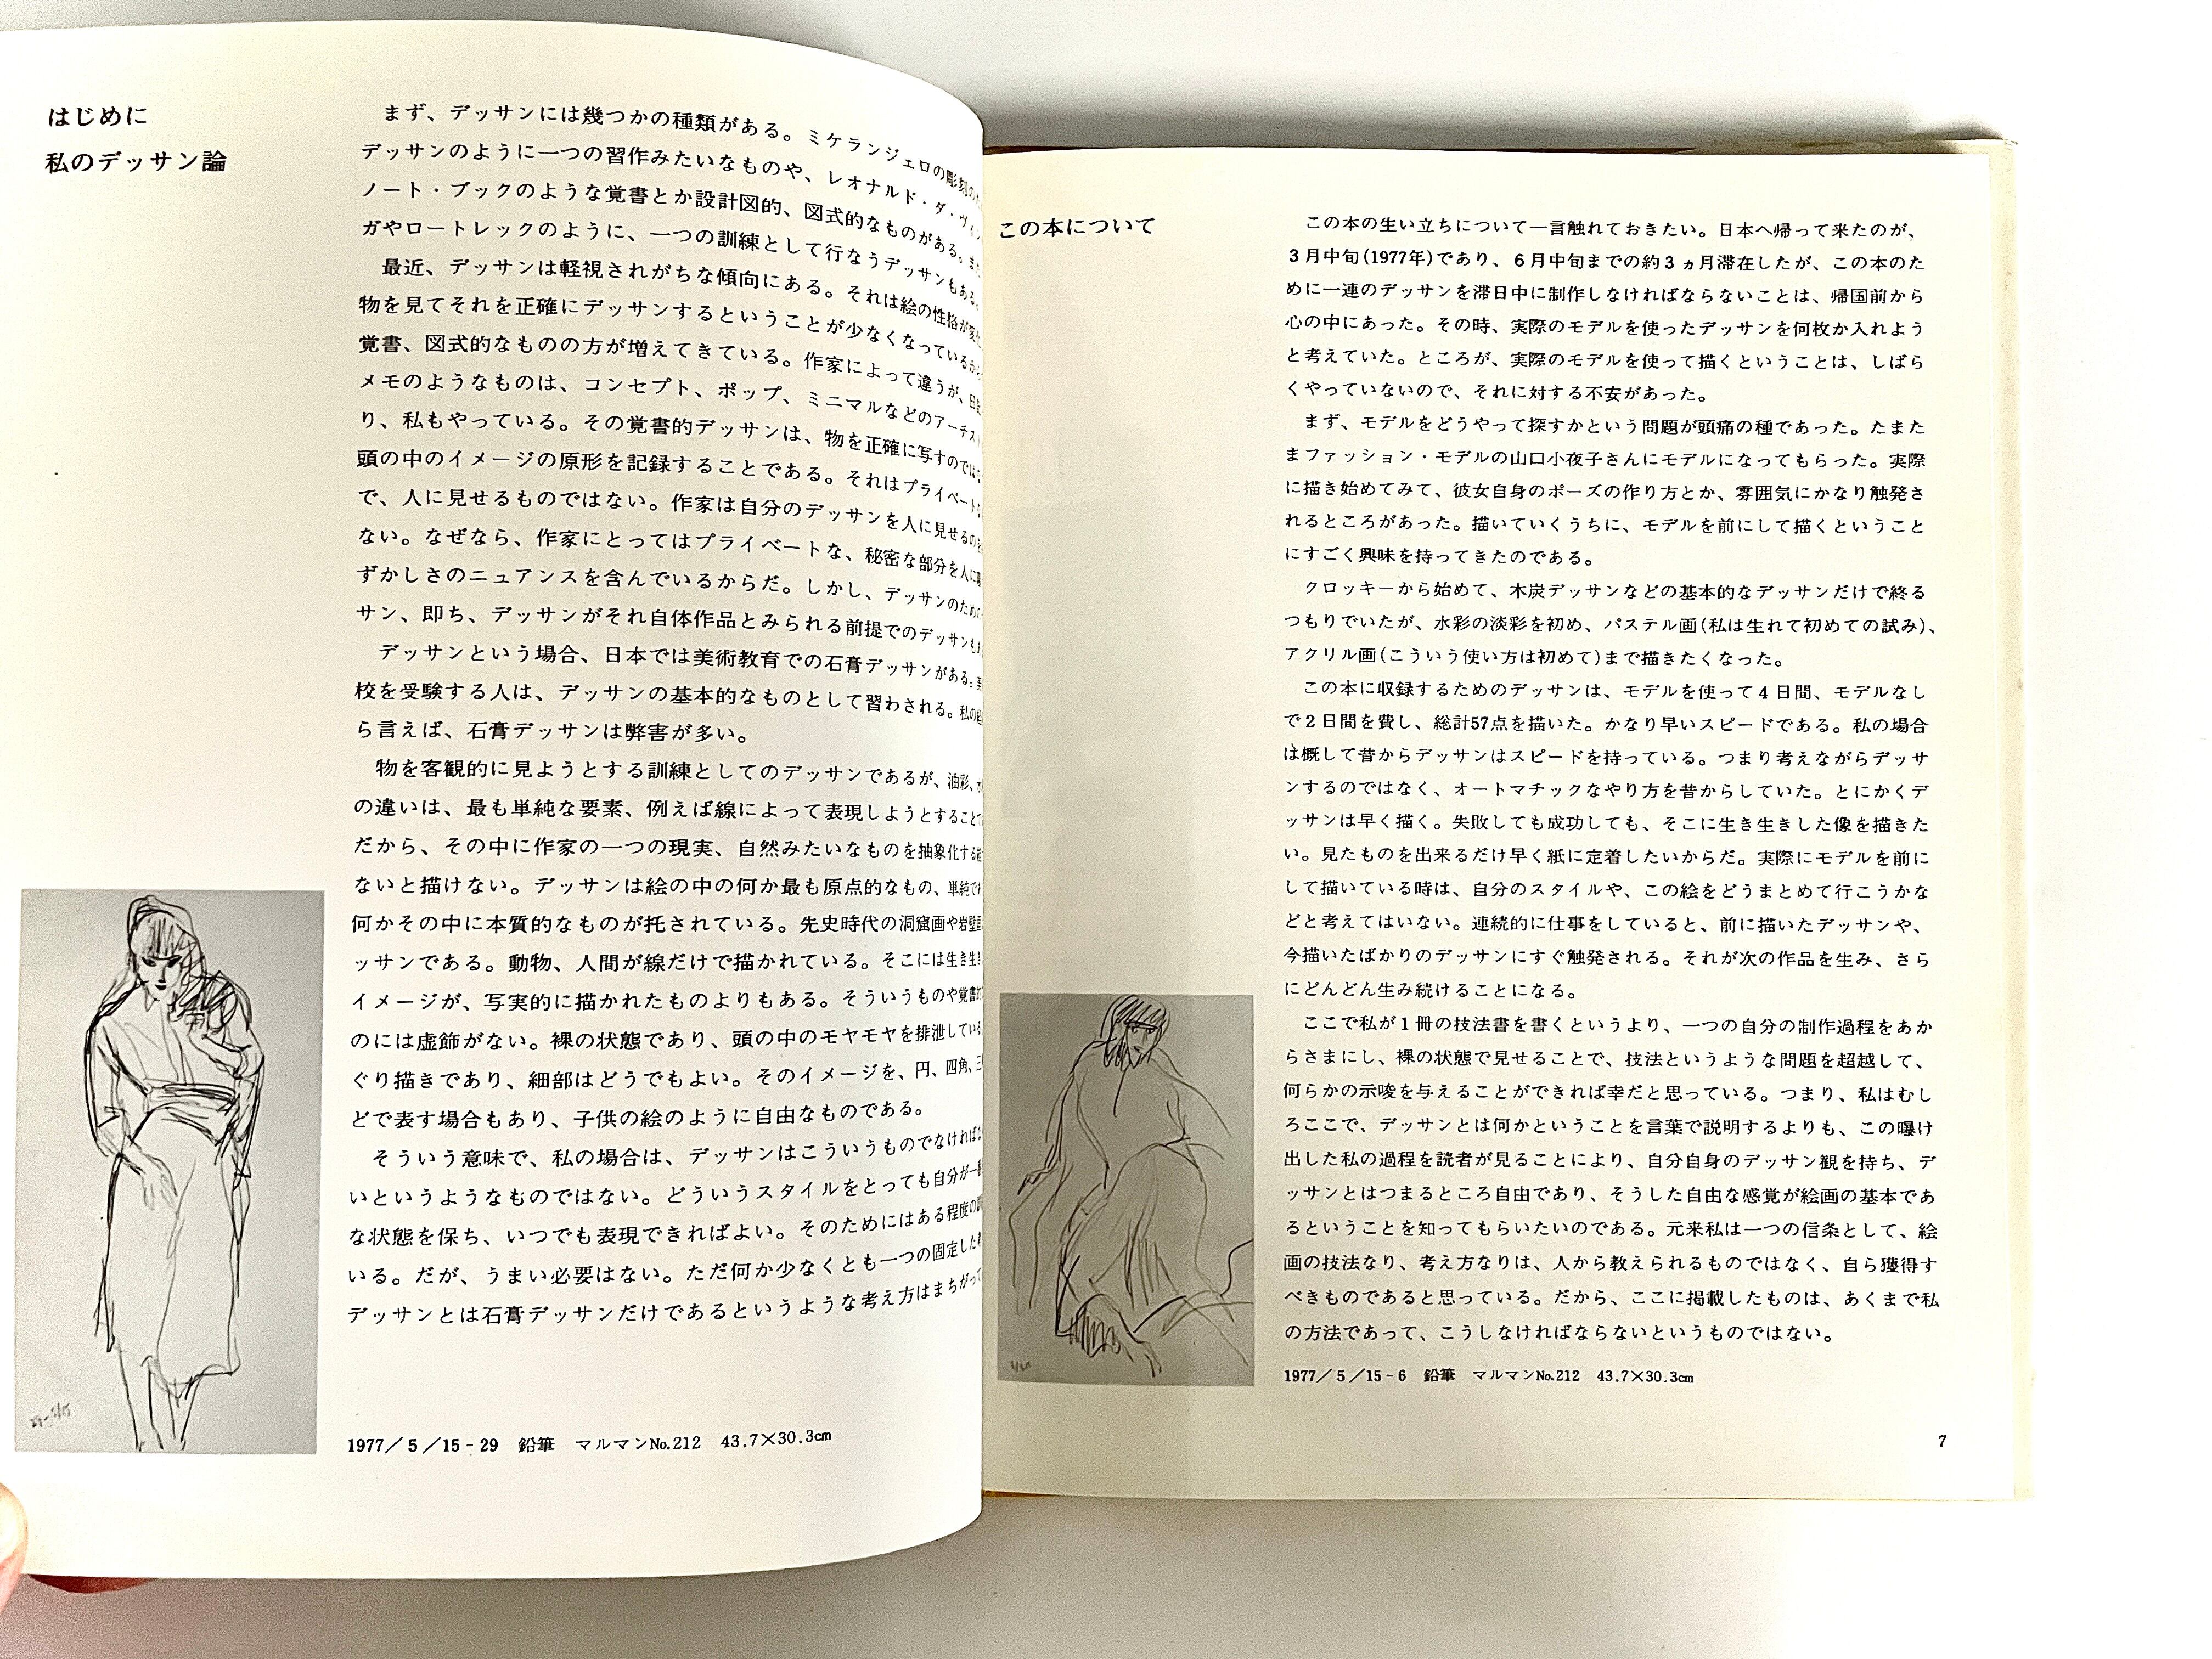 はじめに
私のデッサン論
まず、デッサンには幾つかの種類がある。ミケランジェロの彫刻の
デッサンのように一つの習作みたいなものや、レオナルド・ダ・ヴィ
ノート・ブックのような覚書とか設計図的、図式的なものがある。また
ガやロートレックのように、一つの訓練として行なうデッサンもある。
最近、デッサンは軽視されがちな傾向にある。それは絵の性格が変
物を見てそれを正確にデッサンするということが少なくなっているから
覚書、図式的なものの方が増えてきている。作家によって違うが、日
メモのようなものは、コンセプト、ポップ、ミニマルなどのアーチスト
り、私もやっている。その覚書的デッサンは、物を正確に写すのではな
頭の中のイメージの原形を記録することである。それはプライベートな
で、人に見せるものではない。作家は自分のデッサンを人に見せるのを
ない。なぜなら、作家にとってはプライベートな、秘密な部分を人に
ずかしさのニュアンスを含んでいるからだ。しかし、デッサンのための
サン、即ち、デッサンがそれ自体作品とみられる前提でのデッサンもあ
デッサンという場合、日本では美術教育での石膏デッサンがある。
校を受験する人は、デッサンの基本的なものとして習わされる。私の
ら言えば、石膏デッサンは弊害が多い。
物を客観的に見ようとする訓練としてのデッサンであるが、油彩、
の違いは、最も単純な要素、例えば線によって表現しようとすること
だから、その中に作家の一つの現実、自然みたいなものを抽象化する
ないと描けない。デッサンは絵の中の何か最も原点的なもの、単純で
何かその中に本質的なものが托されている。先史時代の洞窟画や岩壁
ッサンである。動物、人間が線だけで描かれている。そこには生き生き
イメージが、写実的に描かれたものよりもある。そういうものや覚書
のには虚飾がない。裸の状態であり、頭の中のモヤモヤを排泄している
ぐり描きであり、細部はどうでもよい。そのイメージを、円、四角、三
どで表す場合もあり、子供の絵のように自由なものである。
そういう意味で、私の場合は、デッサンはこういうものでなければな
いというようなものではない。どういうスタイルをとっても自分が一番
な状態を保ち、いつでも表現できればよい。そのためにはある程度の
いる。だが、うまい必要はない。ただ何か少なくとも一つの固定した
デッサンとは石膏デッサンだけであるというような考え方はまちがって
1977／5／15－29　鉛筆　マルマンNo.212　43.7×30.3cm
この本について
この本の生い立ちについて一言触れておきたい。日本へ帰って来たのが、
3月中旬(1977年)であり、6月中旬までの約3ヵ月滞在したが、この本のた
めに一連のデッサンを滞日中に制作しなければならないことは、帰国前から
心の中にあった。その時、実際のモデルを使ったデッサンを何枚か入れよう
と考えていた。ところが、実際のモデルを使って描くということは、しばら
くやっていないので、それに対する不安があった。
まず、モデルをどうやって探すかという問題が頭痛の種であった。たまた
まファッション・モデルの山口小夜子さんにモデルになってもらった。実際
に描き始めてみて、彼女自身のポーズの作り方とか、雰囲気にかなり触発さ
れるところがあった。描いていくうちに、モデルを前にして描くということ
にすごく興味を持ってきたのである。
クロッキーから始めて、木炭デッサンなどの基本的なデッサンだけで終る
つもりでいたが、水彩の淡彩を初め、パステル画(私は生れて初めての試み)、
アクリル画(こういう使い方は初めて)まで描きたくなった。
この本に収録するためのデッサンは、モデルを使って4日間、モデルなし
で2日間を費し、総計57点を描いた。かなり早いスピードである。私の場合
は概して昔からデッサンはスピードを持っている。つまり考えながらデッサ
ンするのではなく、オートマチックなやり方を昔からしていた。とにかくデ
ッサンは早く描く。失敗しても成功しても、そこに生き生きした像を描きた
い。見たものを出来るだけ早く紙に定着したいからだ。実際にモデルを前に
して描いている時は、自分のスタイルや、この絵をどうまとめて行こうかな
どと考えてはいない。連続的に仕事をしていると、前に描いたデッサンや、
今描いたばかりのデッサンにすぐ触発される。それが次の作品を生み、さら
にどんどん生み続けることになる。
ここで私が1冊の技法書を書くというより、一つの自分の制作過程をあか
らさまにし、裸の状態で見せることで、技法というような問題を超越して、
何らかの示唆を与えることができれば幸だと思っている。つまり、私はむし
ろここで、デッサンとは何かということを言葉で説明するよりも、この曝け
出した私の過程を読者が見ることにより、自分自身のデッサン観を持ち、デ
ッサンとはつまるところ自由であり、そうした自由な感覚が絵画の基本であ
るということを知ってもらいたいのである。元来私は一つの信条として、絵
画の技法なり、考え方なりは、人から教えられるものではなく、自ら獲得す
べきものであると思っている。だから、ここに掲載したものは、あくまで私
の方法であって、こうしなければならないというものではない。
1977／5／15－6　鉛筆　マルマンNo.212　43.7×30.3cm
7